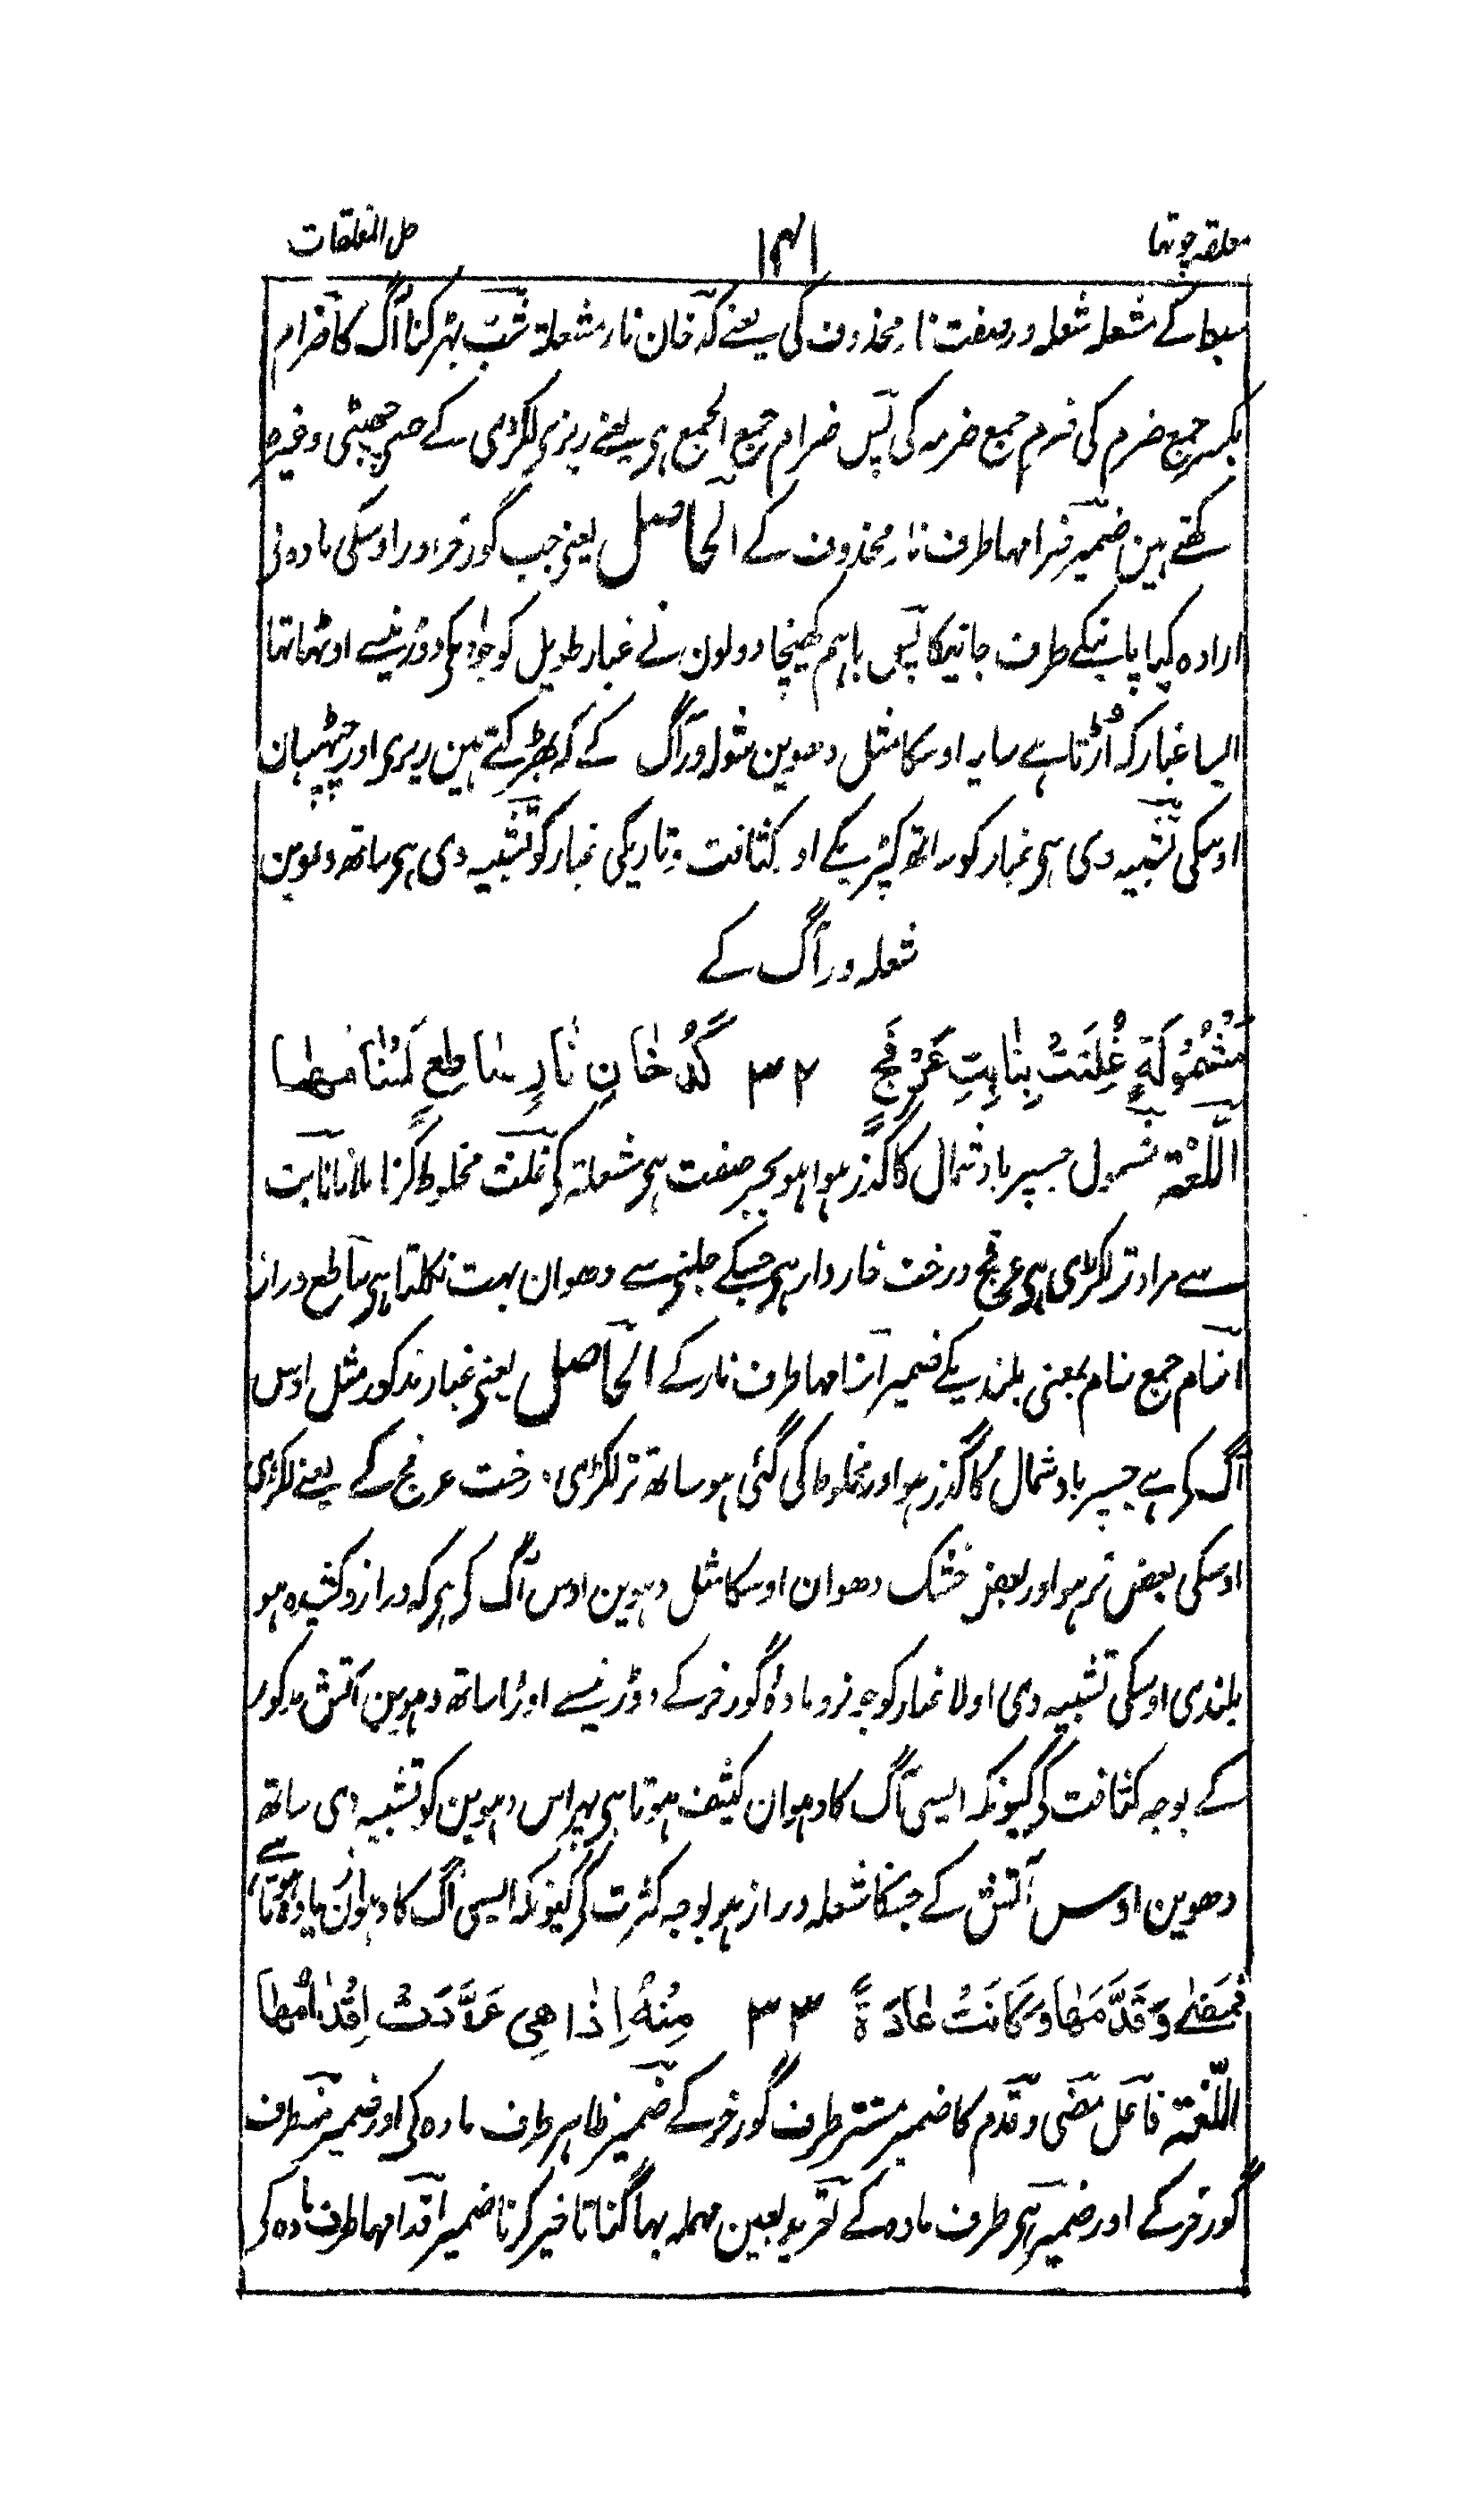 معلقہ چوتھا ۱۴۱ حل المعلقات
سبطا کے شعلہ شعلہ ور صفت نار محذوف کی یعنے کدخان نار مشعلۃ شبّ بہڑکنا آگ کا ضرام
بکسر جمع ضرم کی ضرم جمع ضرمہ کی پس ضرام جمع الجمع ہی یعنے ریزی لکڑی کے جسی چپٹی وغیرہ
کہتے ہین ضمیر ضرامہا طرف نار محذوف کے الحاصل یعنی جب گورخر اور اوسکی مادہ نی
ارادہ کیا پانیکے طرف جانیکا پس باہم کھینچا دولون نے غبار طویل کو جو اونکی دوڑنیسے اوٹہا تہا
ایسا غبار کہ اُڑتا ہے سایہ اوسکا مثل دھوین شعلہ ور آگ کے کہ بھڑکتے ہین ریزی اور چپٹیان
اوسکی تشبیہ دی ہی غبار کو ساتھ کپڑیکے اور کثافت و تاریکی غبار کو تشبیہ دی ہی ساتھ دھوین
شعلہ ور آگ کے
مَشْمُوْلَةٍ غُلِثَتْ بِنٰابِتِ عَرْفَجٍ ۳۲ كَدُخٰانِ نٰارٍ سٰاطِعٍ اَسْنٰامُهٰا
اللّغۃ مشمول جسپر باد شمال کا گذر ہوا ہو بجر صفت ہی شعلۃ کی غلث مخلوط کرنا ملانا نابت
سے مراد تر لکڑی ہی عرفج درخت خاردار ہی جسکے جلنی سے دھوان بہت نکلتا ہی ساطع دراز
اسنام جمع سنام بمعنی بلندیکے ضمیر اسنامہا طرف نار کے الحاصل یعنی غبار مذکور مثل اوس
آگ کی ہے جسپر باد شمال کا گذر ہو اور مخلوط کی گئی ہو ساتھ تر لکڑی درخت عرفج کے یعنے لکڑی
اوسکی بعض تر ہو اور بعض خشک دھوان اوسکا مثل دہوین اوس آگ کی ہی کہ دراز و کشیدہ ہو
بلندی اوسکی تشبیہ دی اولا غبار کو جو نر و مادۂ گورخر کے دوڑنیسے اوڑا ساتھ دہوین آتش مذکور
کے بوجہ کثافت کی کیونکہ ایسی آگ کا دہوان کثیف ہوتا ہی پہر اس دہوین کو تشبیہ دی ساتھ
دھوین اوس آتش کے جسکا شعلہ دراز ہو بوجہ کثرت کی کیونکہ ایسی آگ کا دہوان زیادہ ہوتا ہے
فَمَضٰى وَقَدَّمَهٰا وَكَانَتْ عٰادَةً ۳۳ مِنْهُ اِذٰا هِىَ عَرَّدَتْ اِقْدٰامُهٰا
اللّغۃ فاعل مضی و قدم کا ضمیر مستتر طرف گورخر کے ضمیر ظاہر طرف مادہ کی اور ضمیر منہ طرف
گورخر کے اور ضمیر ہی طرف مادہ کے تعرید بعین مہملہ بہاگنا تاخیر کرنا ضمیر اقدامہا طرف مادہ کی